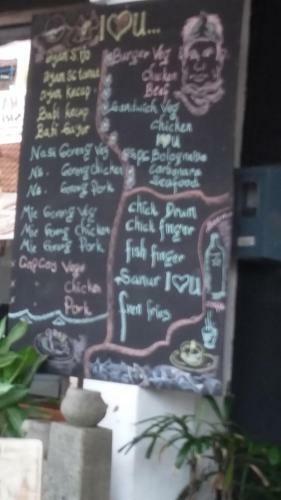 I ♡ u...
Ayam S
Ayam
Ayam Kecap
Babi Kecap
Babi
Nasi Goreng Veg
Na. Goreng Chicken
Na. Goreng Pork
Mie Goreng Veg
Mie Goreng Chicken
Mie Goreng Pork
Cap Cay Vege
Chicken
Pork
Burger Veg
Chicken
Beef
Sandwich Veg
Chicken
I ♡ U
Bolognaise
Carbonara
Seafood
Chick Drum
Chick finger
fish finger
Sanur I ♡ U
fren fries